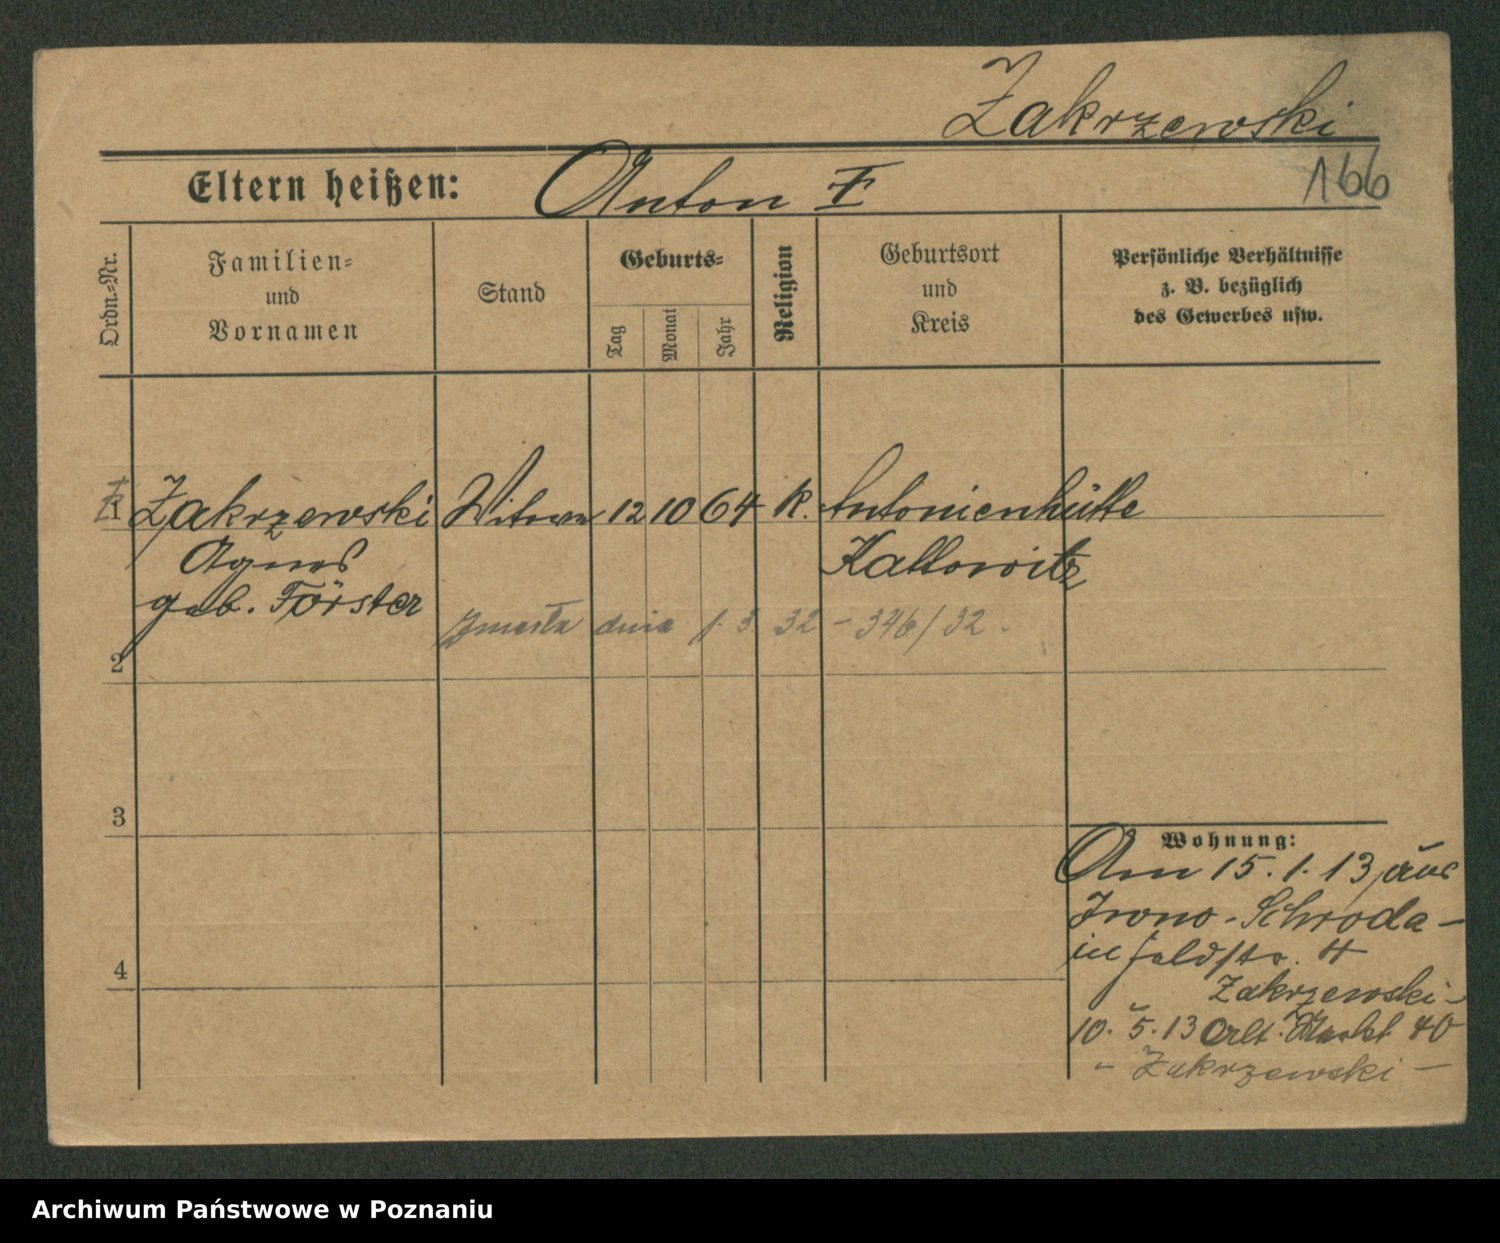 Zakrzewski
166
Eltern heißen: Anton †
Ordn.-Nr.
Familien-
und
Vornamen
Stand
Geburts-
Tag Monat Jahr
Religion
Geburtsort
und
Kreis
Persönliche Verhältnisse
z. B. bezüglich
des Gewerbes usw.
1 Zakrzewski Witwe 12 10 64 k. Antonienhütte
Agnes Kattowitz
geb. Förster
Zmarła dnia 1. 3 32 - 346/32.
2
3
4
Wohnung:
Am 15. 1. 13 aus
Schroda -
in Feldstr. 4
Zakrzewski -
10. 5. 13 Alt. Markt 40
" Zakrzewski -
Archiwum Państwowe w Poznaniu